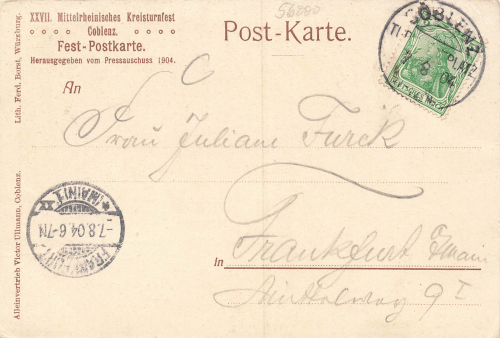 XXVII. Mittelrheinisches Kreisturnfest
Coblenz.
Fest-Postkarte.
Herausgegeben vom Pressauschuss 1904.
56000
Post-Karte.
COBLENZ
PLATZ
An
Frau Juliane Furck
in Frankfurt Main
9 I
FRANKFURT
-7.8.04. 6-7N
(MAIN) 1
Lith. Ferd. Borst, Würzburg.
Alleinvertrieb Victor Ullmann, Coblenz.